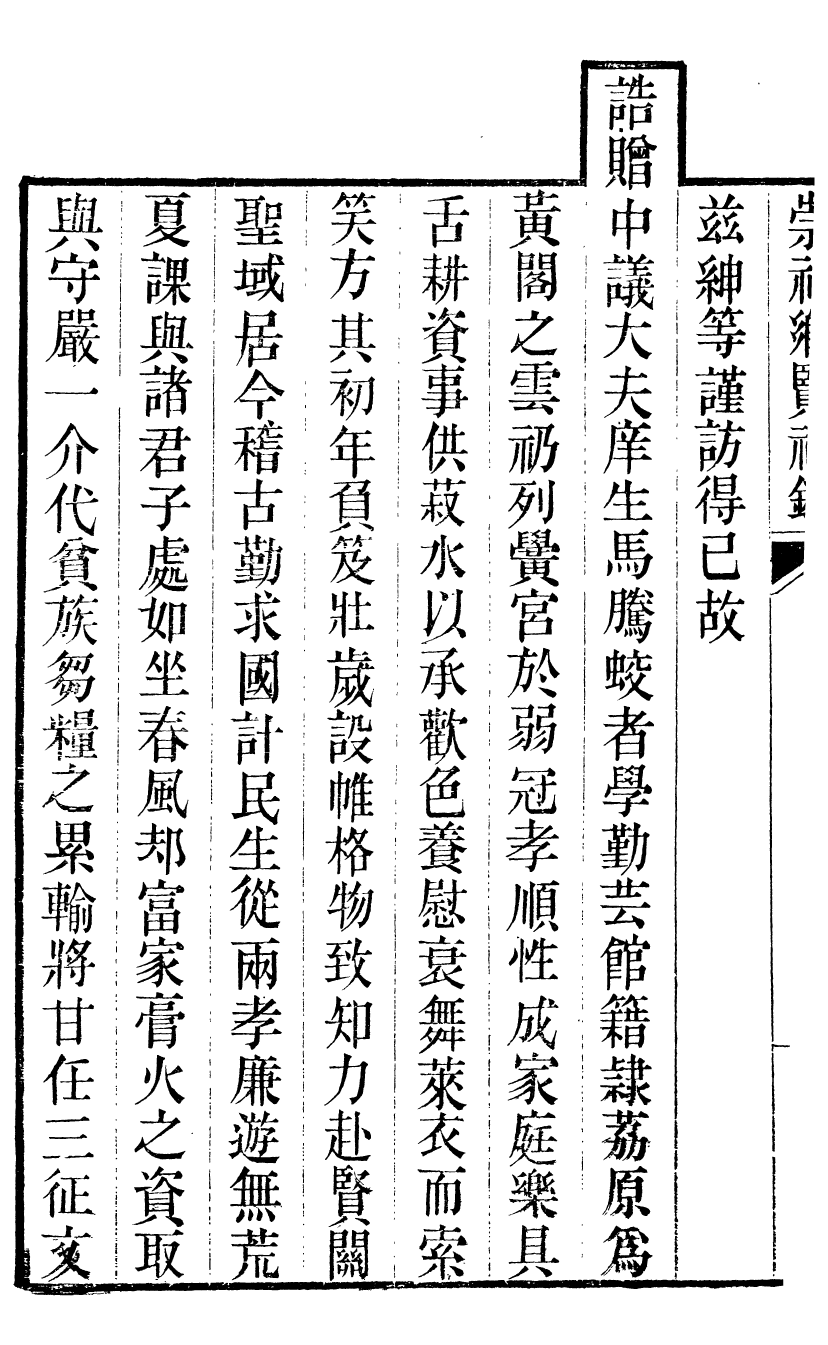 崇祀鄉賢祠錄
兹紳等謹訪得已故
誥贈中議大夫庠生馬騰蛟者學勤芸館籍隸荔原爲
黃閣之雲礽列黌宮於弱冠孝順性成家庭樂具
舌耕資事供菽水以承歡色養慰衰舞萊衣而索
笑方其初年負笈壯歲設帷格物致知力赴賢關
聖域居今稽古勤求國計民生從兩孝廉遊無荒
夏課與諸君子處如坐春風却富家膏火之資取
與守嚴一介代貧族芻糧之累輸將甘任三征文